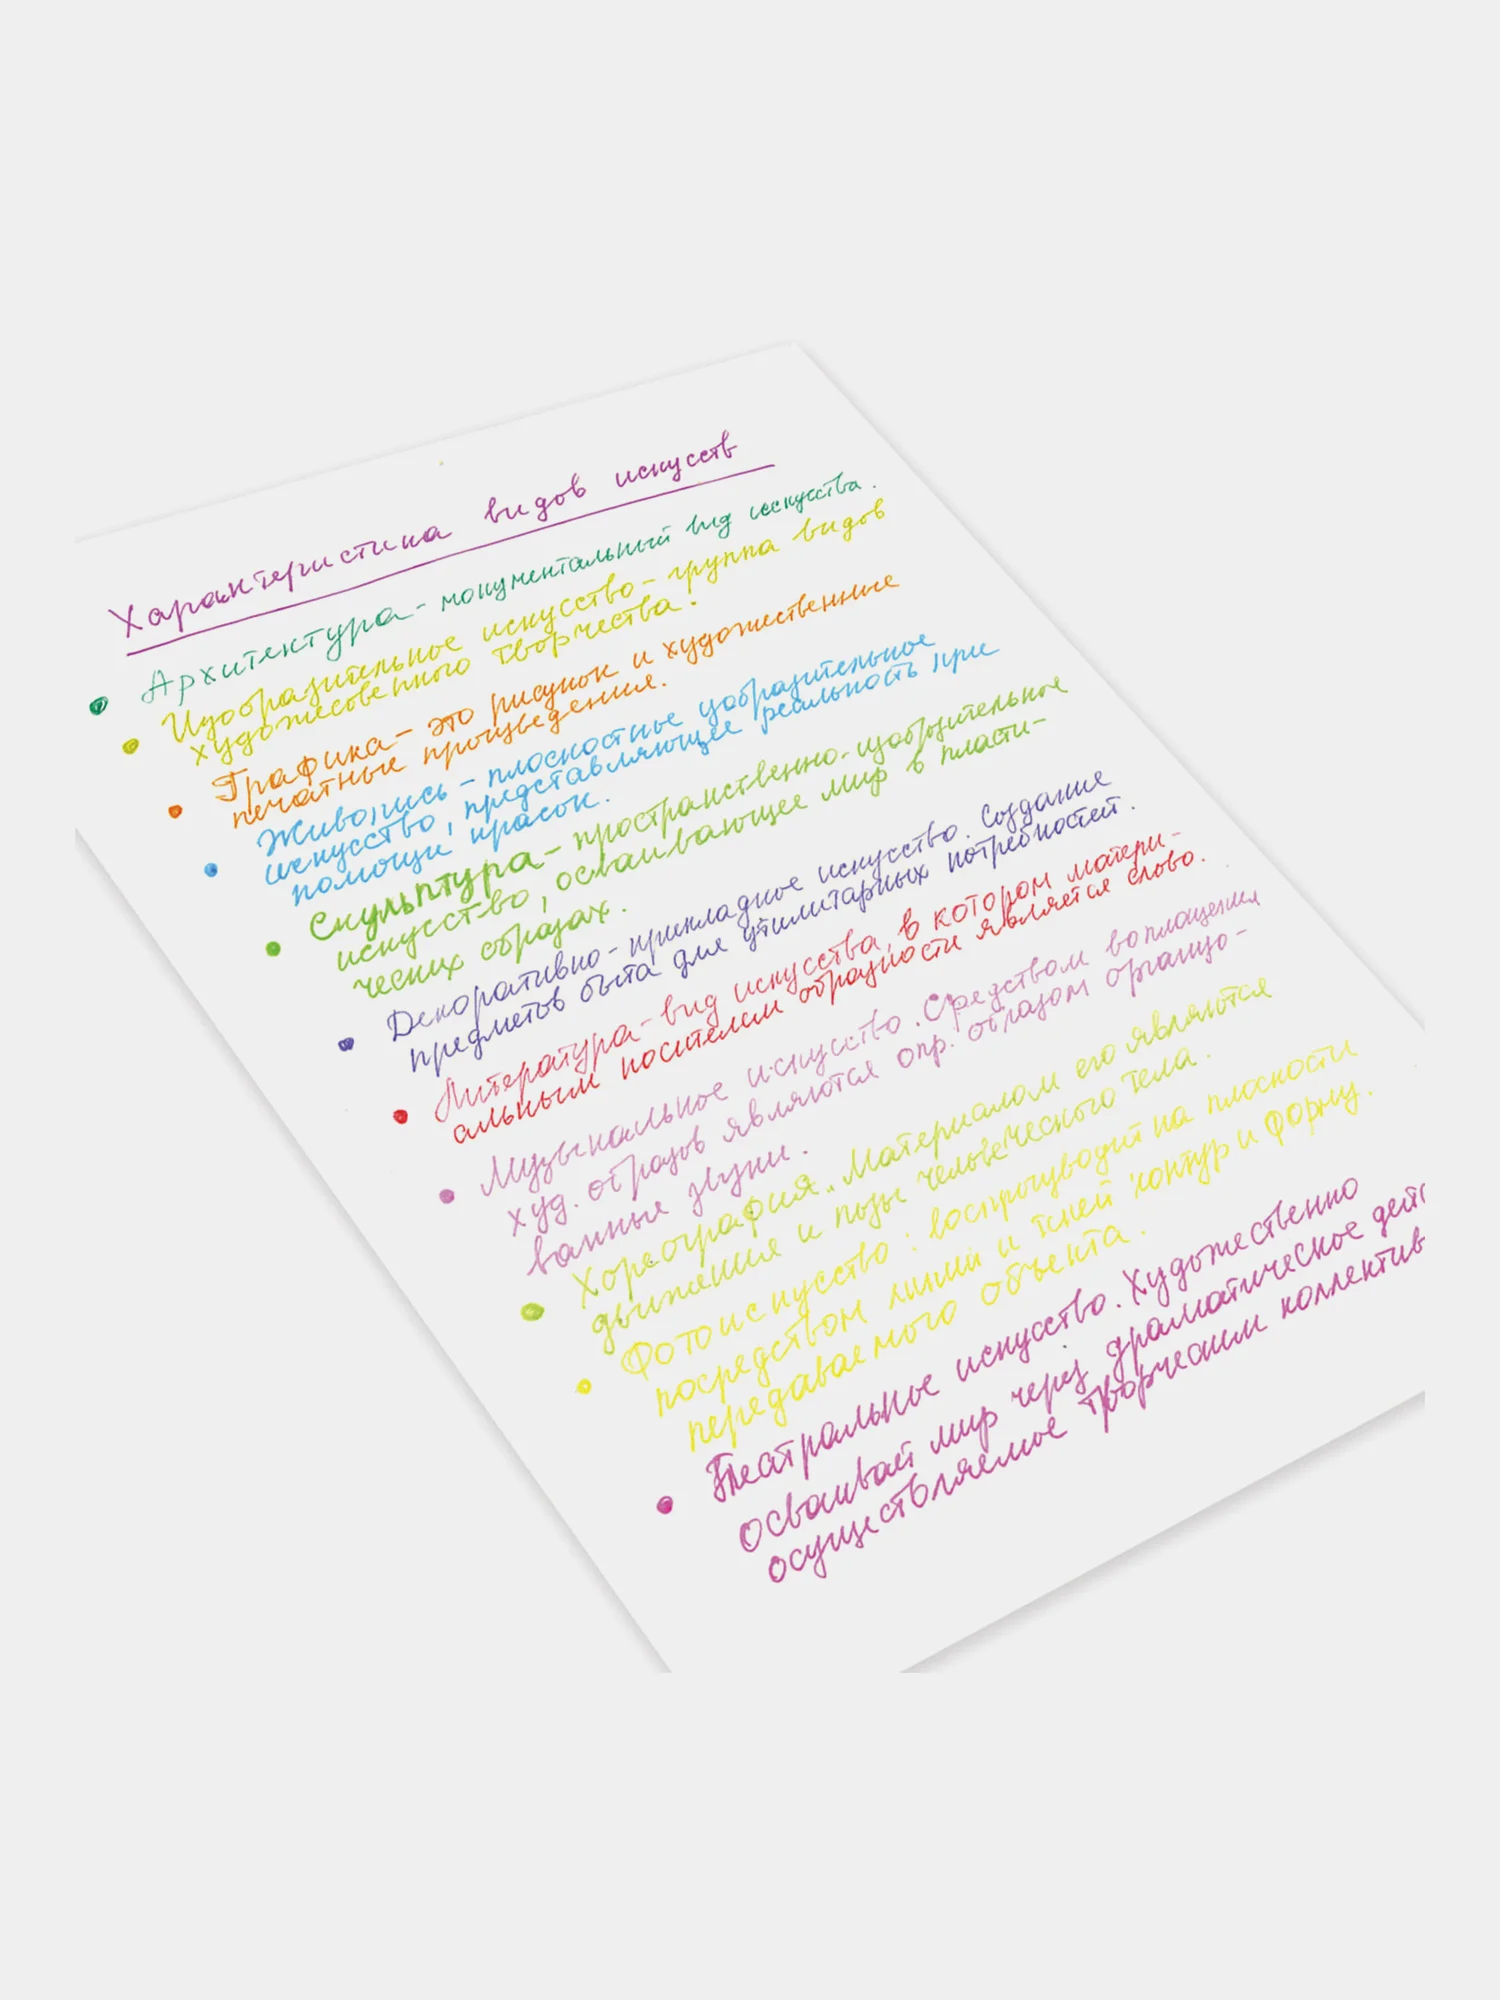 Характеристика видов искусств
Архитектура - монументальный вид искусства.
Изобразительное искусство - группа видов
художесовенного творчества.
Графика - это рисунок и художественные
печатные произведения.
Живопись - плоскостные изобразительное
искусство, представляющее реальность при
помощи красок.
Скульптура - пространственно-изобразительное
искусство, осваивающее мир в пласти-
ческих образах.
Декоративно-прикладное искусство. Создание
предметов быта для утилитарных потребностей.
Литература - вид искусства, в котором матери-
альным носителем образности является слово.
Музыкальное искусство. Средством воплощения
худ. образов являются опр. образом организо-
ванные звуки.
Хореография. Материалом его являются
движения и позы человеческого тела.
Фотоискусство: воспроизводит на плоскости
посредством линий и теней контур и форму
передаваемого объекта.
Театральное искусство. Художественно
осваивает мир через драматическое дейс
осуществляемое творческим коллектив